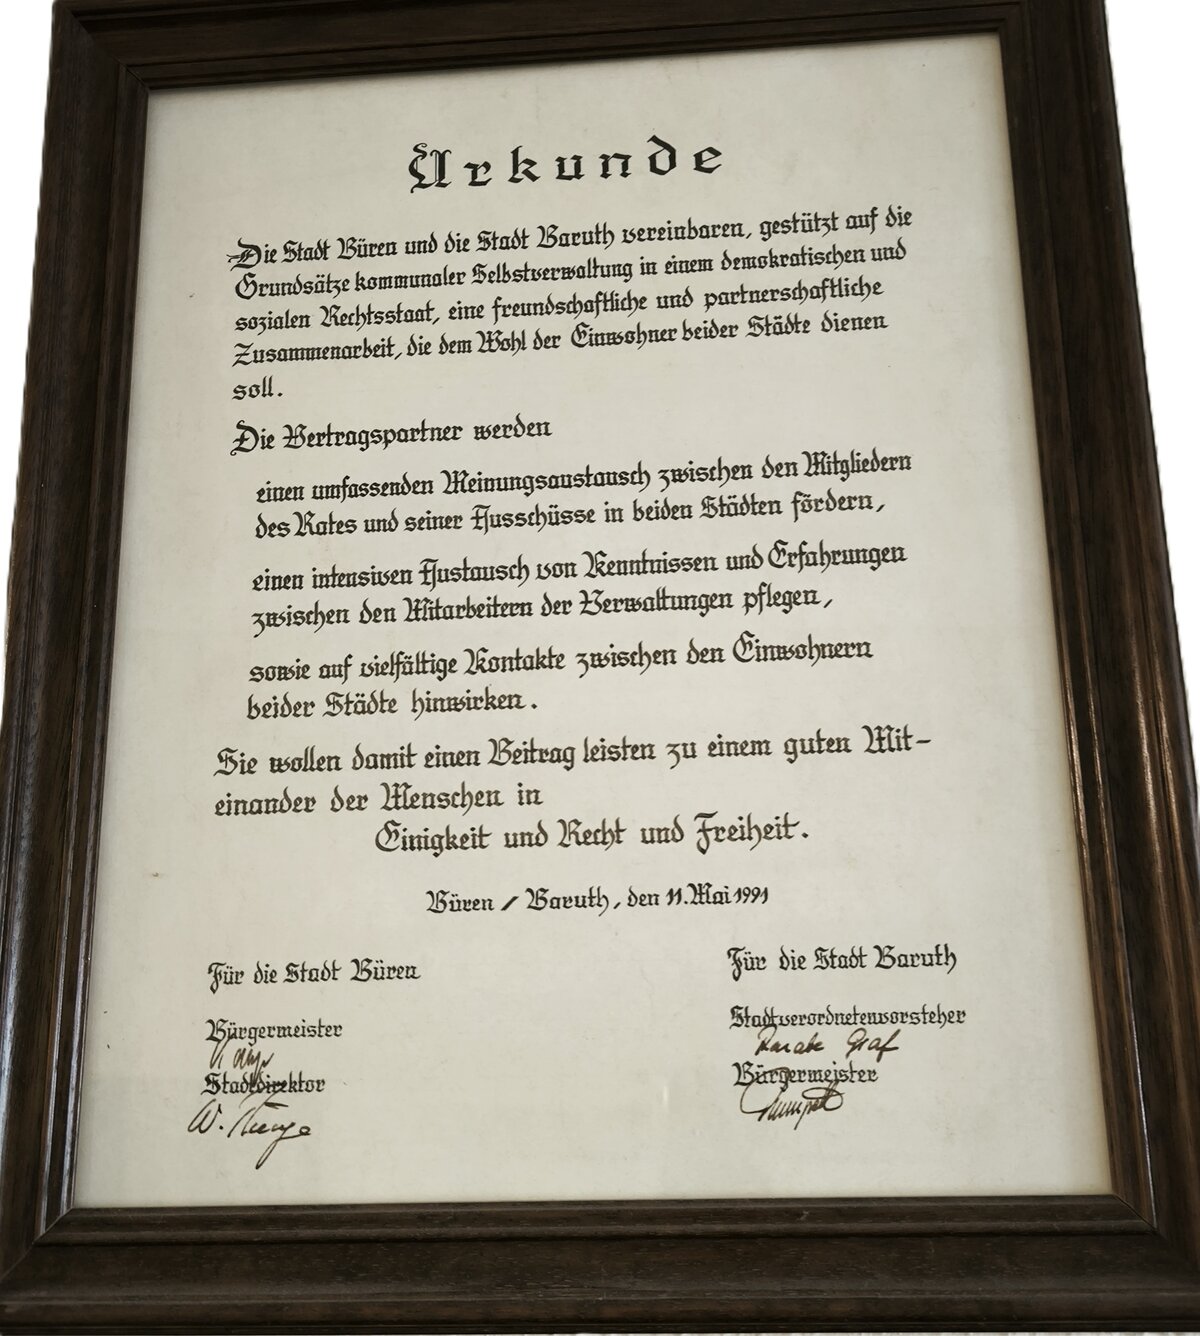 Urkunde
Die Stadt Büren und die Stadt Baruth vereinbaren, gestützt auf die
Grundsätze kommunaler Selbstverwaltung in einem demokratischen und
sozialen Rechtsstaat, eine freundschaftliche und partnerschaftliche
Zusammenarbeit, die dem Wohl der Einwohner beider Städte dienen
soll.
Die Vertragspartner werden
einen umfassenden Meinungsaustausch zwischen den Mitgliedern
des Rates und seiner Ausschüsse in beiden Städten fördern,
einen intensiven Austausch von Kenntnissen und Erfahrungen
zwischen den Mitarbeitern der Verwaltungen pflegen,
sowie auf vielfältige Kontakte zwischen den Einwohnern
beider Städte hinwirken.
Sie wollen damit einen Beitrag leisten zu einem guten Mit-
einander der Menschen in
Einigkeit und Recht und Freiheit.
Büren / Baruth, den 11. Mai 1991
Für die Stadt Büren
Für die Stadt Baruth
Bürgermeister
Stadtverordnetenvorsteher
Graf
Stadtdirektor
Bürgermeister
W.